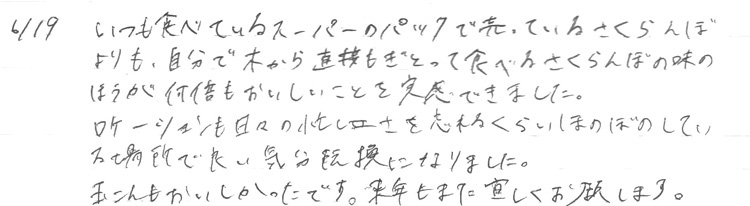 6/19 いつも食べているスーパーのパックで売っているさくらんぼ
よりも、自分で木から直接もぎとって食べるさくらんぼの味の
ほうが何倍もおいしいことを実感できました。
ロケーションも日々の忙しさを忘れるくらいほのぼのしてい
る場所で良い気分転換になりました。
玉こんもおいしかったです。来年もまた宜しくお願します。